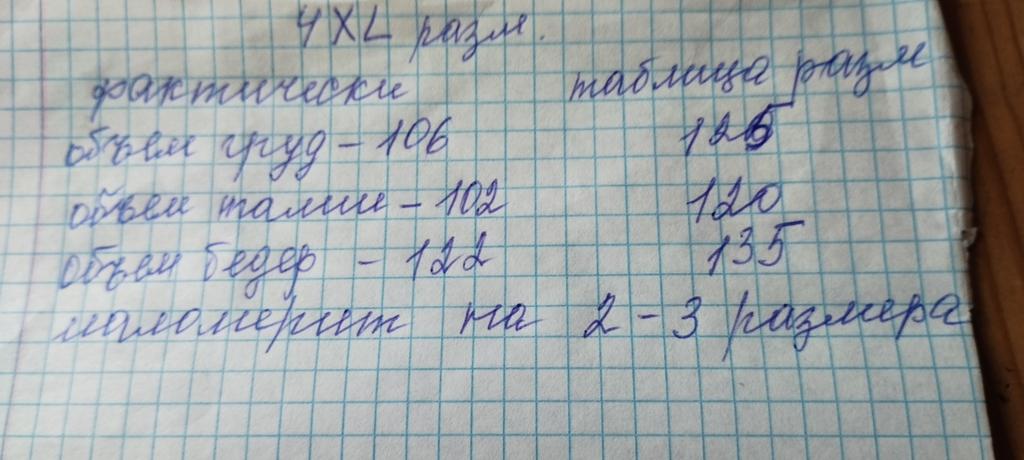 4XL разм.
фактически таблица разм
объем груд - 106 125
объем талии - 102 120
объем бедер - 122 135
маломерит на 2-3 размера